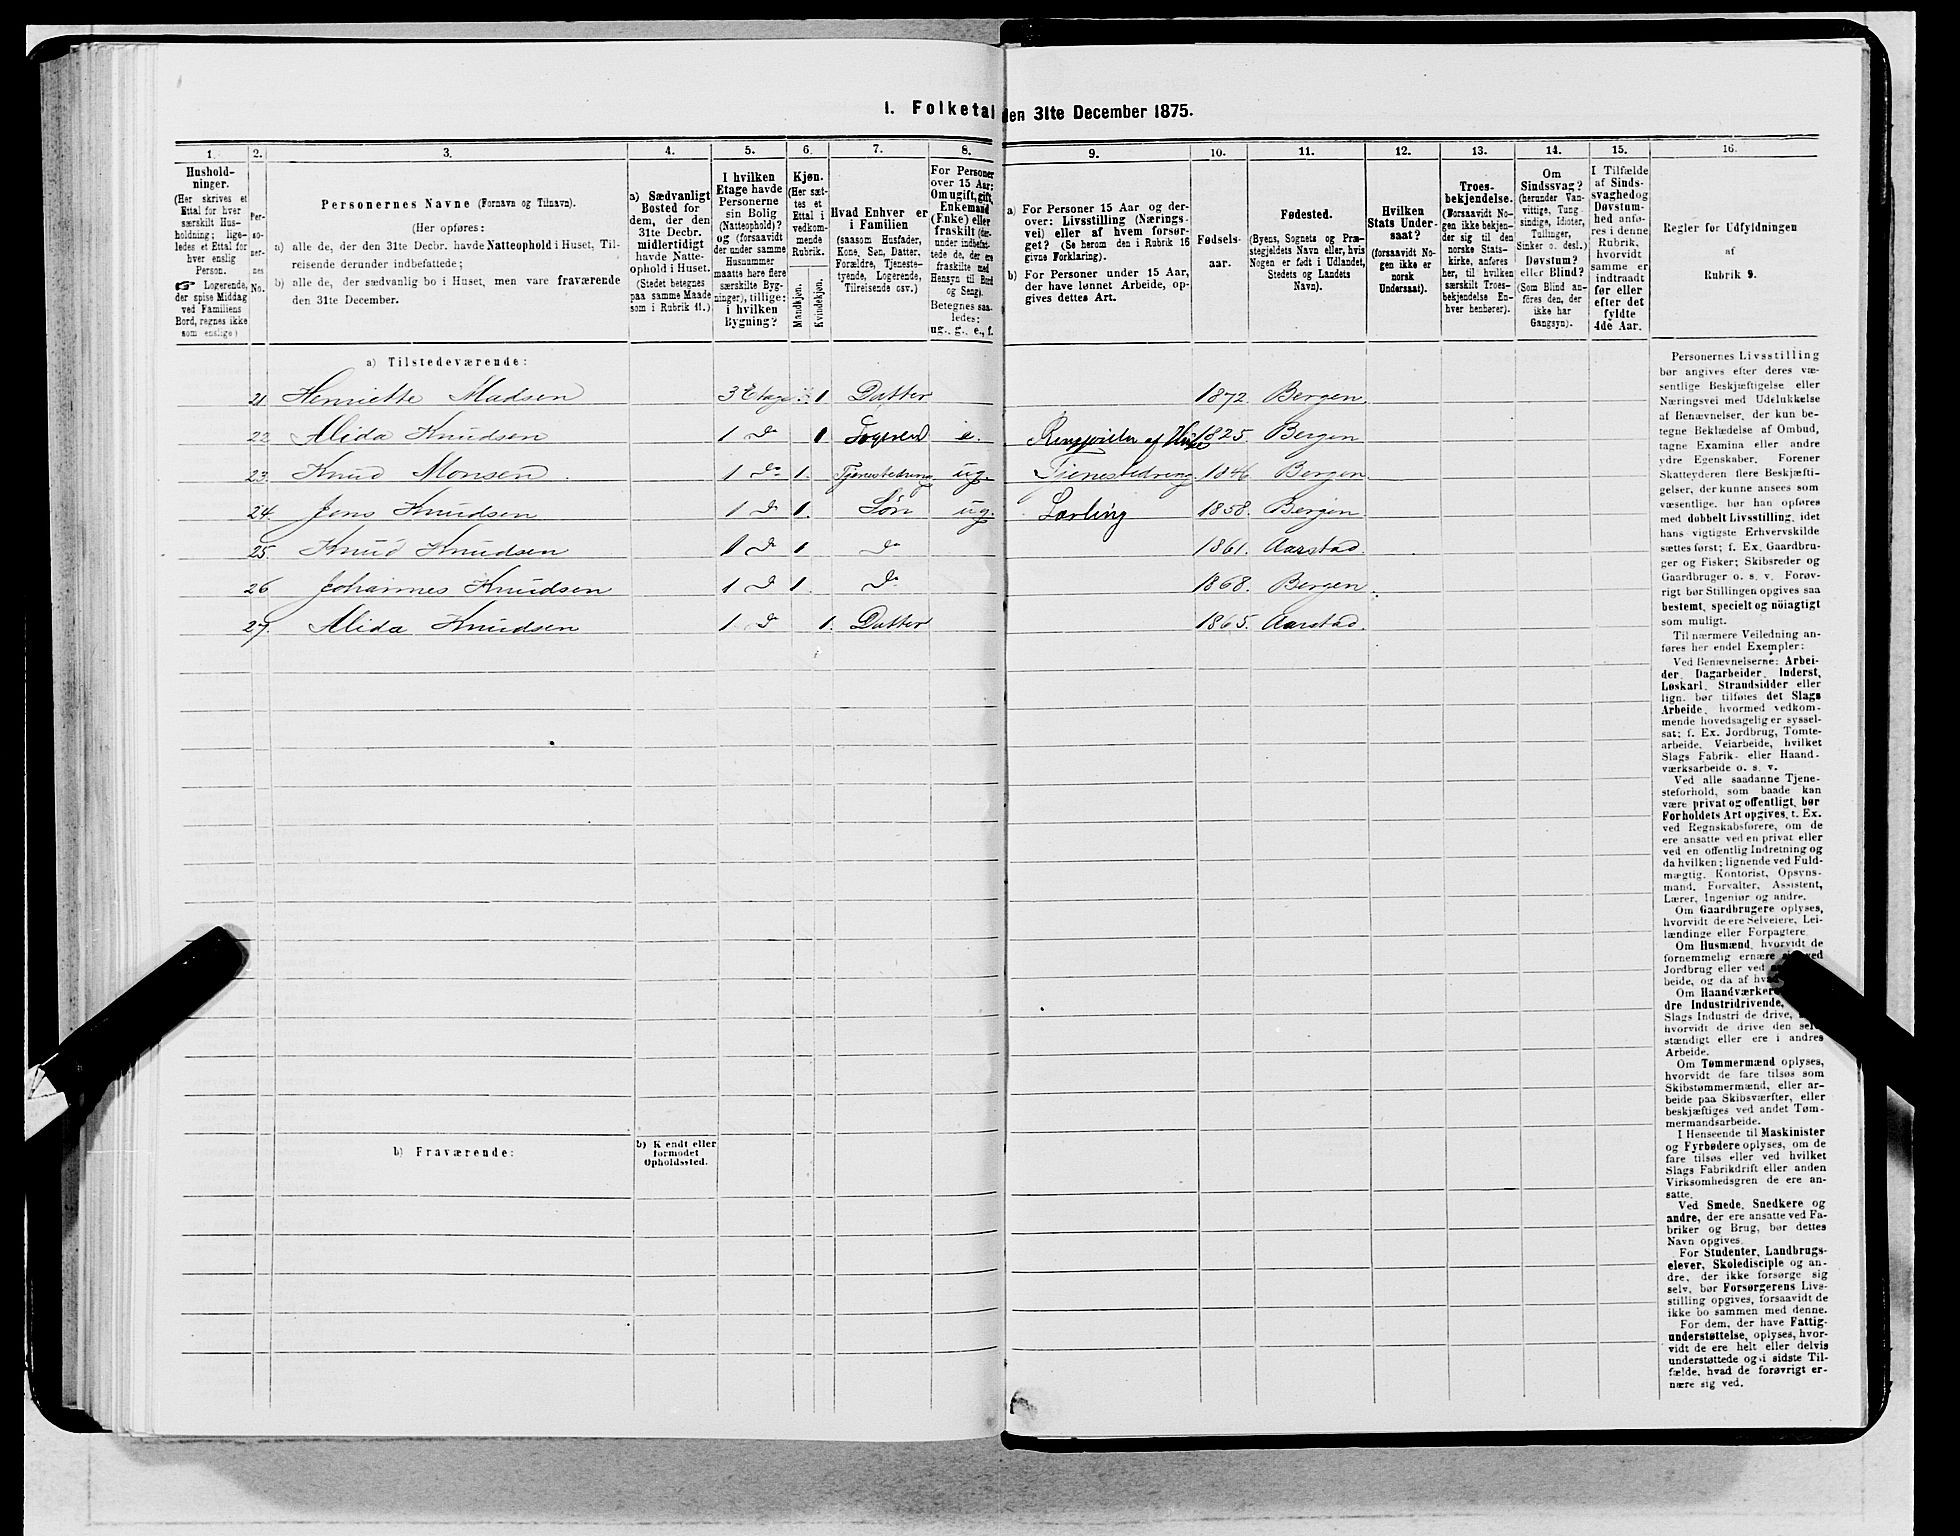 1. Folketal den 31te December 1875.
1. 2. 3. 4. 5. 6. 7. 8. 9. 10. 11. 12. 13. 14. 15. 16.
Hushold-
ninger.
(Her skrives et
Ettal for hver
særskilt Hus-
holdning; lige-
ledes et Ettal for
hver enslig
Person.
☞ Logerende,
der spise Middag
ved Familiens
Bord, regnes ikke
som enslige.)
Per-
so-
ner-
nes
No.
Personernes Navne (Fornavn og Tilnavn).
(Her opføres:
a) alle de, der den 31te Decbr. havde Natteophold i Huset, Til-
reisende derunder indbefattede;
b) alle de, der sædvanlig bo i Huset, men vare fraværende
den 31te December.
a) Sædvanligt
Bosted for
dem, der den
31te Decbr.
midlertidigt
havde Natte-
ophold i Huset.
(Stedet betegnes
paa samme Maade
som i Rubrik 11.)
I hvilken
Etage havde
Personerne
sin Bolig
(Natteophold)?
og (forsaavidt
der under samme
Husnummer
maatte høre flere
særskilte Byg-
ninger), tillige:
i hvilken
Bygning?
Kjøn.
(Her sæt-
tes et
Ettal i
vedkom-
mende
Rubrik.
Mandkjøn.
Kvindekjøn.
Hvad Enhver er
i Familien
(saasom Husfader,
Kone, Søn, Datter,
Forældre, Tjeneste-
tyende, Logerende,
Tilreisende osv.)
For Personer
over 15 Aar:
Om ugift, gift,
Enkemand
(Enke) eller
fraskilt (der-
under indbefat-
tede de, der ere
fraskilte med
Hensyn til Bord
og Seng).
Betegnes saa-
ledes:
ug., g., e., f.
a) For Personer 15 Aar og der-
over: Livsstilling (Nærings-
vei) eller af hvem forsør-
get? (Se herom den i Rubrik 16
givne Forklaring).
b) For Personer under 15 Aar,
der have lønnet Arbeide, op-
gives dettes Art.
Fødsels-
aar.
Fødested.
(Byens, Sognets og Præ-
stegjeldets Navn eller, hvis
Nogen er født i Udlandet,
Stedets og Landets
Navn).
Hvilken
Stats Under-
saat?
(forsaavidt No-
gen ikke er
norsk
Undersaat).
Troes-
bekjendelse.
(Forsaavidt No-
gen ikke bekjen-
der sig til den
norske Stats-
kirke, anføres
her, til hvilken
særskilt Troes-
bekjendelse En-
hver henhører).
Om
Sindssvag?
(herunder Van-
vittige, Tung
sindige, Idioter,
Tullinger,
Sinker o. desl.)
Døvstum?
eller Blind?
(Som Blind an-
føres den, der
ikke har
Gangsyn).
I Tilfælde
af Sinds-
svaghed og
Døvstum-
hed anfø-
res i denne
Rubrik,
hvorvidt
samme er
indtraadt
før eller
efter det
fyldte
4de Aar.
Regler for Udfyldningen
af
Rubrik 9.
a) Tilstedeværende:
21 Henriette Madsen 3 Etage 1 Datter 1872. Bergen.
22 Alida Knudsen 1 do 1 e. 1825. Bergen
23. Knud Monsen 1 do 1. Tjenestedreng ug. Tjenestedreng 1846 Bergen
24. Jens Knudsen 1 do 1. Søn ug. Lærling 1858. Bergen
25 Knud Knudsen 1 do 1 do 1861. Aarstad.
26 Johannes Knudsen 1 do 1. do 1868. Bergen.
27. Alida Knudsen 1 do 1. Datter 1865. Aarstad.
b) Fraværende:
b) Kjendt eller
formodet
Opholdssted.
Personernes Livsstilling
bør angives efter deres væ-
sentlige Beskjæftigelse eller
Næringsvei med Udelukkelse
af Benævnelser, der kun be-
tegne Beklædelse af Ombud,
tagne Examina eller andre
ydre Egenskaber. Forener
Skatteyderen flere Beskjæfti-
gelser, der kunne ansees som
væsentlige, bør han opføres
med dobbelt Livsstilling, idet
hans vigtigste Erhvervskilde
sættes først; f. Ex. Gaardbru-
ger og Fisker; Skibsreder og
Gaardbruger o. s. v. Forøv-
rigt bør Stillingen opgives saa
bestemt, specielt og nöiagtigt
som muligt.
Til nærmere Veiledning an-
føres her endel Exempler:
Ved Benævnelserne: Arbei-
der, Dagarbeider, Inderst,
Løskarl, Strandsidder eller
lign. bør tilføies det Slags
Arbeide, hvormed vedkom-
mende hovedsagelig er syssel-
sat; f. Ex. Jordbrug, Tomte-
arbeide, Veiarbeide, hvilket
Slags Fabrik- eller Haand-
værksarbeide o. s. v.
Ved alle saadanne Tjene-
steforhold, som baade kan
være privat og offentligt, bør
Forholdets Art opgives, t. Ex.
ved Regnskabsførere, om de
ere ansatte ved en privat eller
ved en offentlig Indretning og
da hvilken; lignende ved Fuld-
mægtig, Kontorist, Opsyns-
mand, Forvalter, Assistent,
Lærer, Ingeniør og andre.
Om Gaardbrugere oplyses,
hvorvidt de ere Selveiere, Lei-
lændinge eller Forpagtere
Om Husmænd, hvorvidt de
fornemmelig ernære sig ved
Jordbrug eller ved
beide, og da af
Om Haandværkere
dre Industridrivende,
Slags Industri de drive,
hvorvidt de drive den selv-
stændigt eller ere i andres
Arbeide.
Om Tømmermænd oplyses,
hvorvidt de fare tilsøs som
Skibstømmermænd, eller ar-
beide paa Skibsværfter, eller
beskjæftiges ved andet Tøm-
mermandsarbeide.
I Henseende til Maskinister
og Fyrbødere oplyses, om de
fare tilsøs eller ved hvilket
Slags Fabrikdrift eller anden
Virksomhedsgren de ere an-
satte.
Ved Smede, Snedkere og
andre, der ere ansatte ved Fa-
briker og Brug, bør dettes
Navn opgives.
For Studenter, Landbrugs-
elever, Skoledisciple og an-
dre, der ikke forsørge sig
selv, bør Forsørgerens Livs-
stilling opgives, forsaavidt de
ikke bo sammen med denne.
For dem, der have Fattig-
understøttelse, oplyses, hvor-
vidt de ere helt eller delvis
understøttede og i sidste Til-
fælde, hvad de forøvrigt er-
nære sig ved.